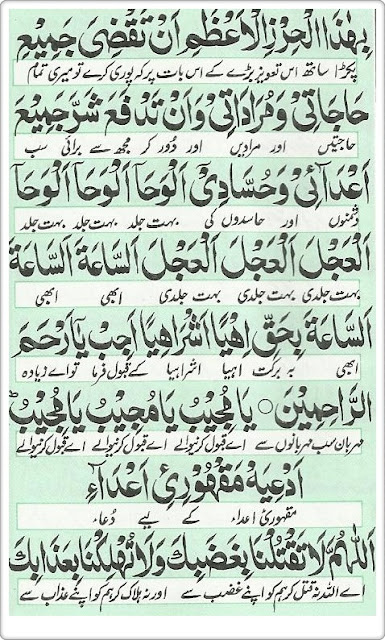 بِهٰذَا الْحِرْزِ الْاَعْظَمِ اَنْ تَقْضِیَ جَمِیْعَ
پکڑا ساتھ اس تعویز بڑے کے اس بات پر کہ پوری کرے تو میری تمام
حَاجَاتِیْ وَمُرَادَاتِیْ وَاَنْ تَدْفَعَ شَرَّ جَمِیْعِ
حاجتیں اور مرادیں اور دُور کر مجھ سے برائی سب
اَعْدَائِیْ وَحُسَّادِیْ اَلْوَحَا اَلْوَحَا اَلْوَحَا
دشمنوں اور حاسدوں کی بہت جلد بہت جلد بہت جلد
اَلْعَجَلَ اَلْعَجَلَ اَلْعَجَلَ اَلسَّاعَةَ اَلسَّاعَةَ
بہت جلدی بہت جلدی بہت جلدی ابھی ابھی
اَلسَّاعَةَ بِحَقِّ اِهْیًا اَشْرَاهِیًا اَجِبْ یَا اَرْحَمَ
ابھی بہ برکت اہیا اشراہیا کے قبول فرما تو اے زیادہ
الرَّاحِمِیْنَ ○ یَا مُجِیْبُ یَا مُجِیْبُ یَا مُجِیْبُ ط
مہربان سب مہربانوں سے اے قبول کرنیوالے اے قبول کرنیوالے اے قبول کرنیوالے
اَدْعِیَهْ مَقْهُوْرِئِ اَعْدَآءِ
مقہورئ اعداء کے لیے دُعاء
اَللّٰهُمَّ لَا تَقْتُلْنَا بِغَضَبِكَ وَلَا تُهْلِكْنَا بِعَذَابِكَ
اے اللہ نہ قتل کر ہم کو اپنے غضب سے اور نہ ہلاک کر ہم کو اپنے عذاب سے